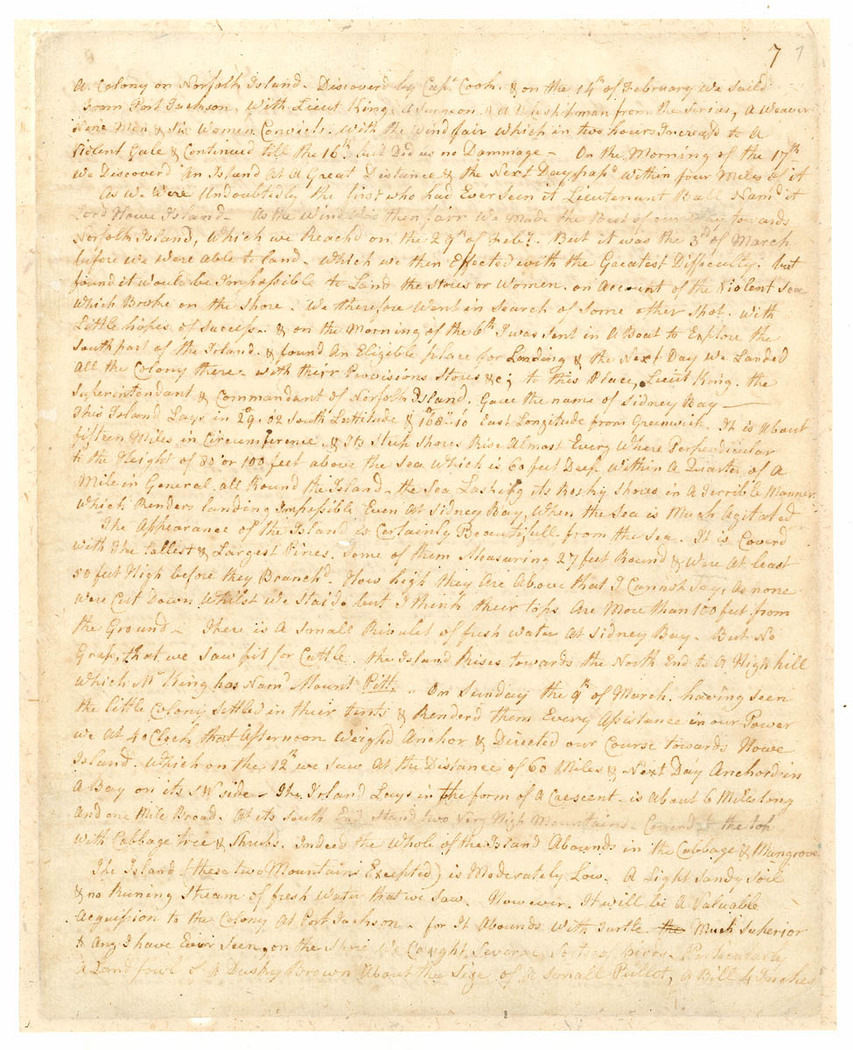 7 7
A Colony on Norfolk Island. Discoverd by Capt. Cook. & on the 14th of February we Saild
from Port Jackson. With Lieut King, A Surgeon. A Midshipman from the Sirius, A Weaver
Nine Men & Six Women Convicts. With the Wind fair which in two hours Increasd to A
Violent Gale & Continued till the 16th but Did us no Dammage - On the Morning of the 17th
We Discoverd An Island At A Great Distance & the Next Day passd within four Miles of it
As We Were Undoubtedly the first who had Ever Seen it Lieutenant Ball Namd it
Lord Howe Island - As the Wind was then fair We Made the Best of our Way towards
Norfolk Island, Which we Reachd on the 29th of Feby. But it was the 3d of March
before we Were Able to land. Which we then Effected with the Greatest Difficulty. but
found it would be Impossible to Land the Stores or Women. on Account of the Violent Sea
Which Broke on the Shore. We therefore Went in Search of Some other Spot. With
Little hopes of Success. & on the Morning of the 6th I was Sent in A Boat to Explore the
South part of the Island. & found An Eligible place for Landing & the Next Day we Landed
All the Colony there. with their Provisions Stores &c; to this Place, Lieut King. the
Superintendant & Commandant of Norfolk Island. Gave the name of Sidney Bay -
This Island Lays in 29.02 South Lattitude & 168.10 East Longitude from Greenwich. It is About
fifteen Miles in Circumference. & Its Steep Shores Rise Almost Every Where Perpendicular
to the Height of 80 or 100 feet above the Sea Which is 60 feet Deep Within A Quarter of A
Mile in General all Round the Island - the Sea Lashing its Rocky Shores in A terrible Manner.
Which Renders landing Impossible Even At Sidney Bay, When the Sea is Much Agitated
The Appearance of the Island is Certainly Beautifull from the Sea. It is Coverd
with the tallest & Largest Pines, Some of them Measuring 27 feet Round & Were At least
80 feet High before they Branchd. How high they Are Above that I Cannot Say, As none
Were Cut Down Whilst We Staid. but I think their tops Are More than 100 feet from
the Ground - There is A Small Rivulet of fresh Water At Sidney Bay - But No
Grass, that we Saw fit for Cattle. the Island Rises towards the North End to A High hill
Which Mr King has Namd Mount Pitt. - On Sunday the 9th of March. having Seen
the little Colony Settled in their tents & Renderd them Every Assistance in our Power
We At 4 oClock that Afternoon Weighd Anchor & Directed our Course towards Howe
Island. Which on the 12th we Saw At the Distance of 60 Miles & Next Day Anchord in
A Bay on its SW side - The Island Lays in the form of A Crescent - is About 6 Miles long
And one Mile Broad. At its South End Stand two Very High Mountains - Coverd to the top
With Cabbage tree & Shrubs. Indeed the Whole of the Island Abounds in the Cabbage & Mangrove
The Island (these two Mountains Excepted) is Moderately Low. A Light Sandy Soil
& no Runing Stream of fresh Water that we Saw. However. It will be A Valuable
Acquisition to the Colony At Port Jackson - for It Abounds With turtle the Much Superior
to Any I have Ever Seen, on the Shore We Caught Several Sorts of birds Particularly
A Land fowl of A Dusky Brown About the Size of A Small Pullet, A Bill 4 Inches